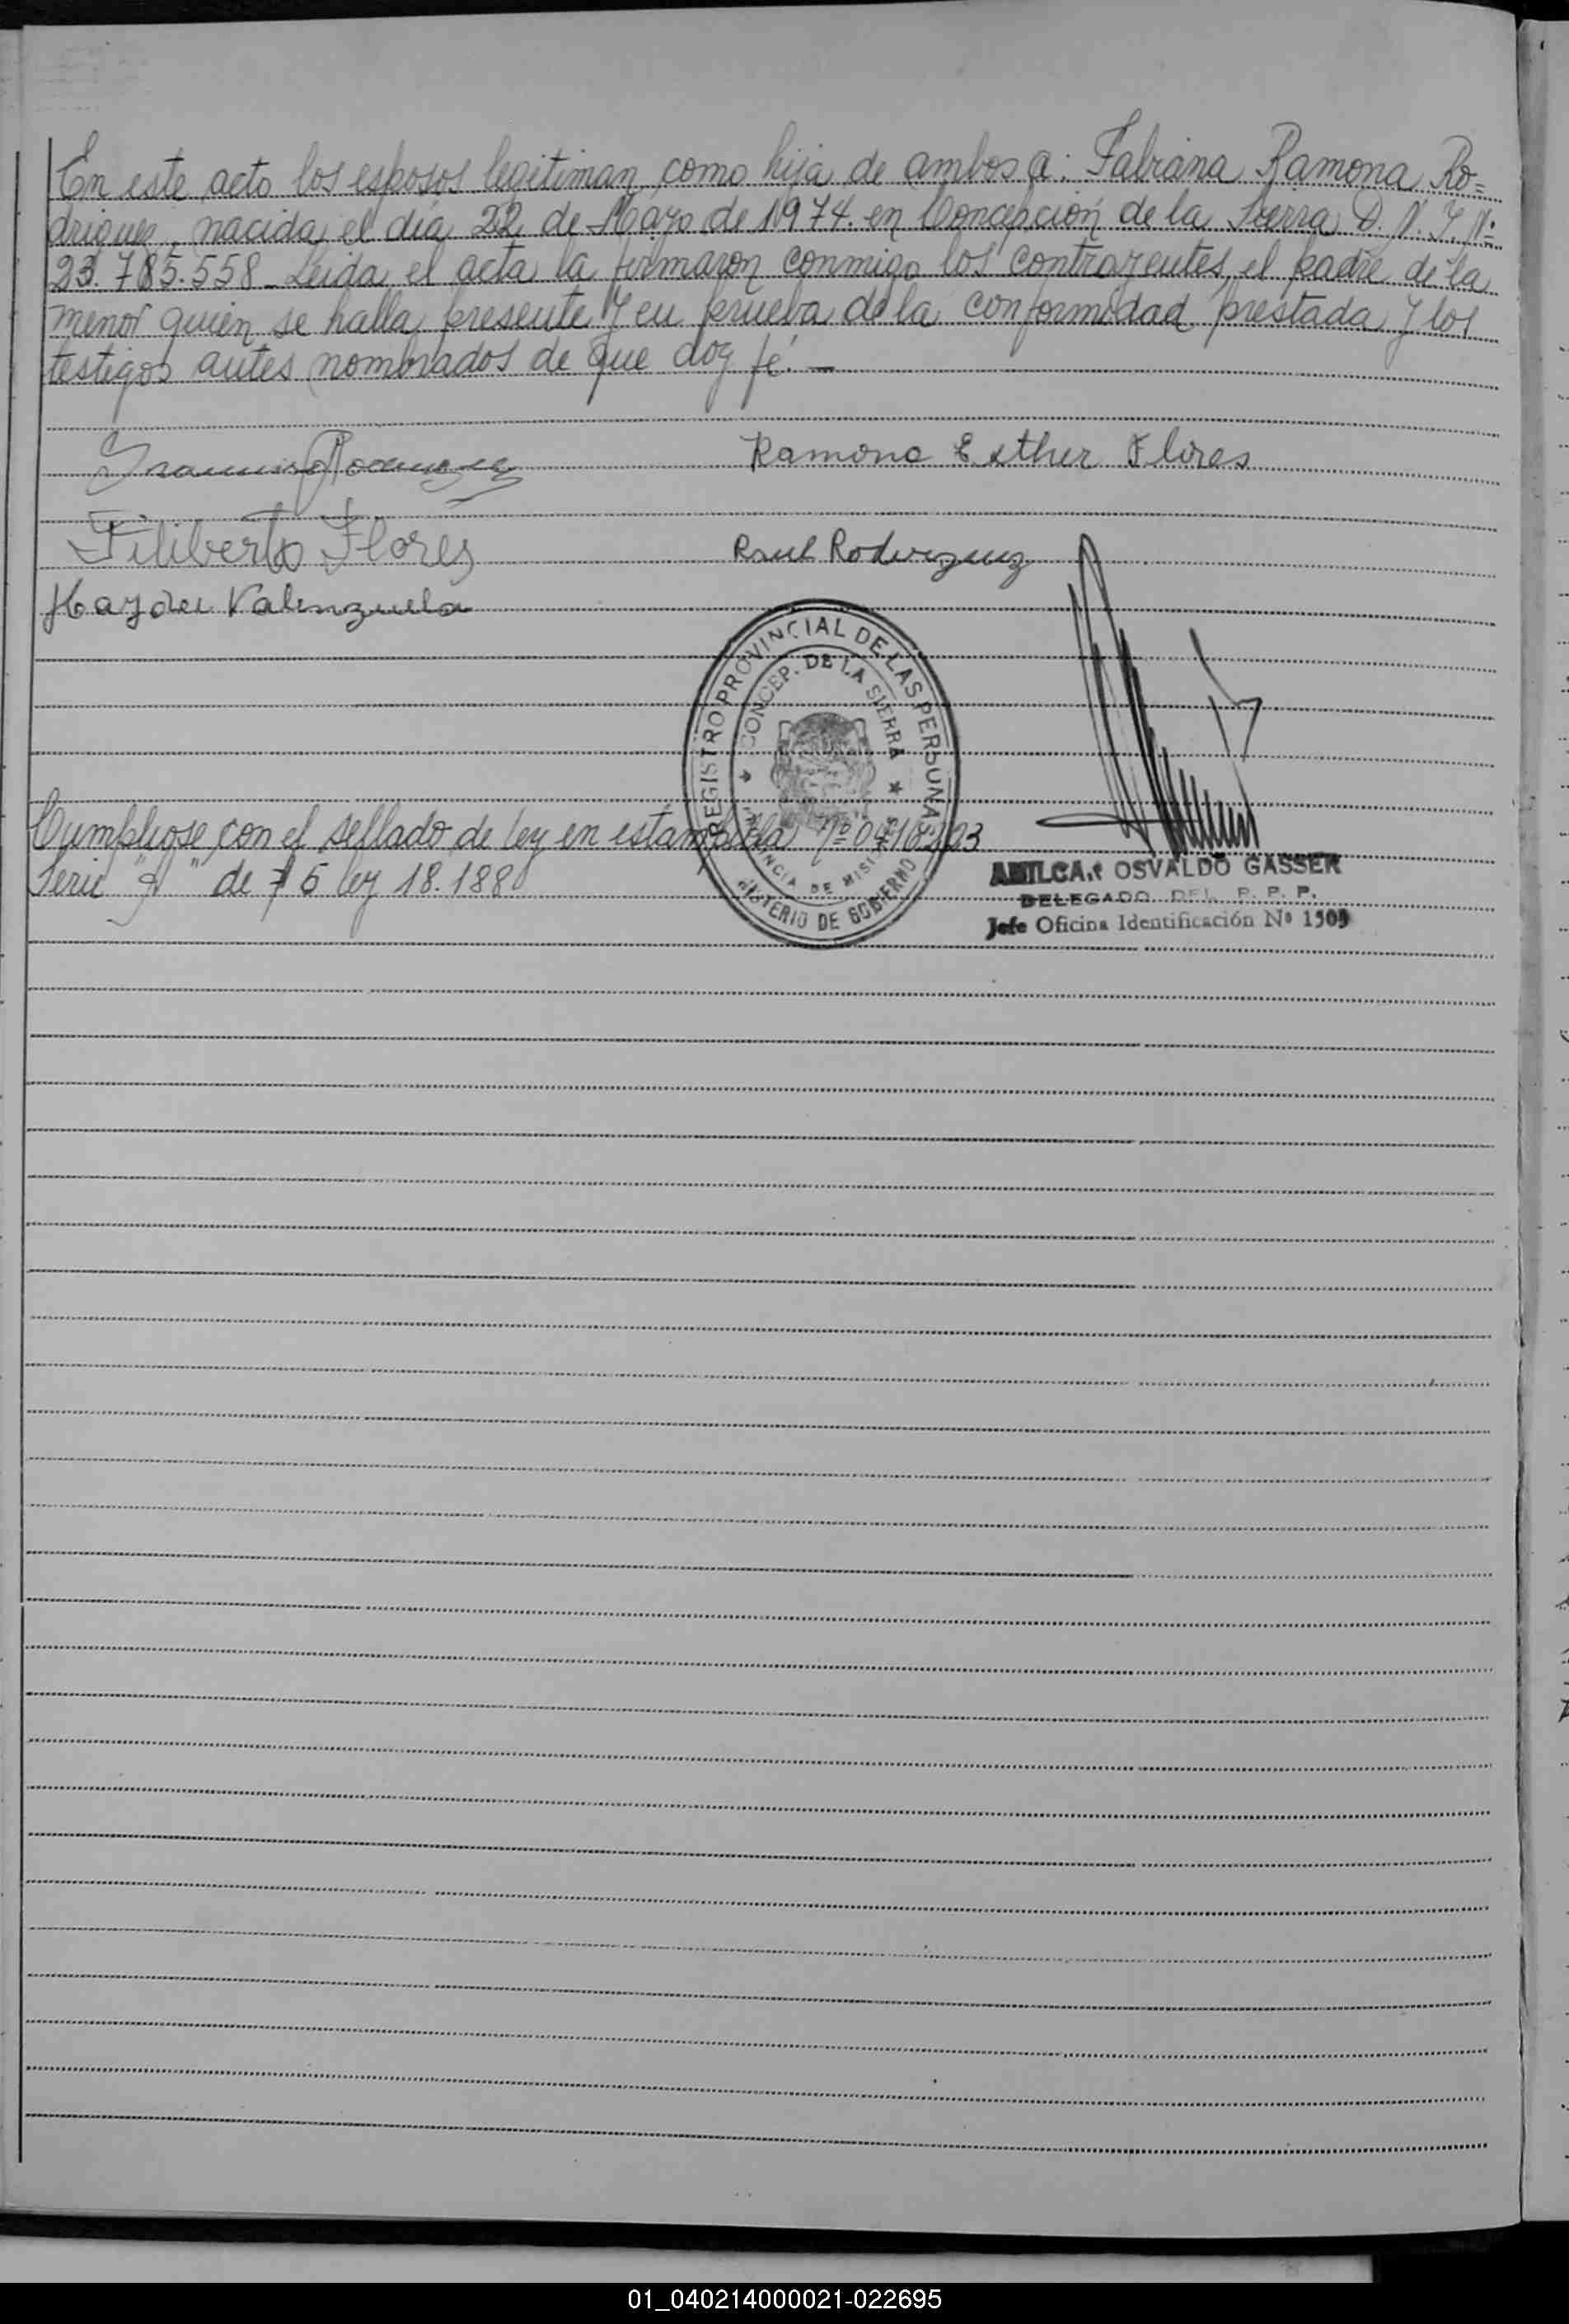 En este acto los esposos legitiman como hija de ambos a: Fabiana Ramona Ro=
driguez, nacida el día 22 de Mayo de 1974. en Concepción de la Sierra D. N. I. Nº
23.785.558_ Leida el acta la firmaron conmigo los contrayentes, el padre de la
menor quien se halla presente y en prueba de la conformidad prestada y los
testigos antes nombrados de que doy fé. _
Ramona Esther Flores
Filiberto Flores
Raul Rodriguez
Haydee Valenzuela
REGISTRO PROVINCIAL DE LAS PERSONAS
CONCEP. DE LA SIERRA
PROVINCIA DE MISIONES
MINISTERIO DE GOBIERNO
Cumpliose con el sellado de ley en estampilla Nº
Serie de $ 5 ley 18.188
AMILCAR OSVALDO GASSER
DELEGADO DEL R. P. P.
Jefe Oficina Identificación Nº 1505
01_040214000021-022695